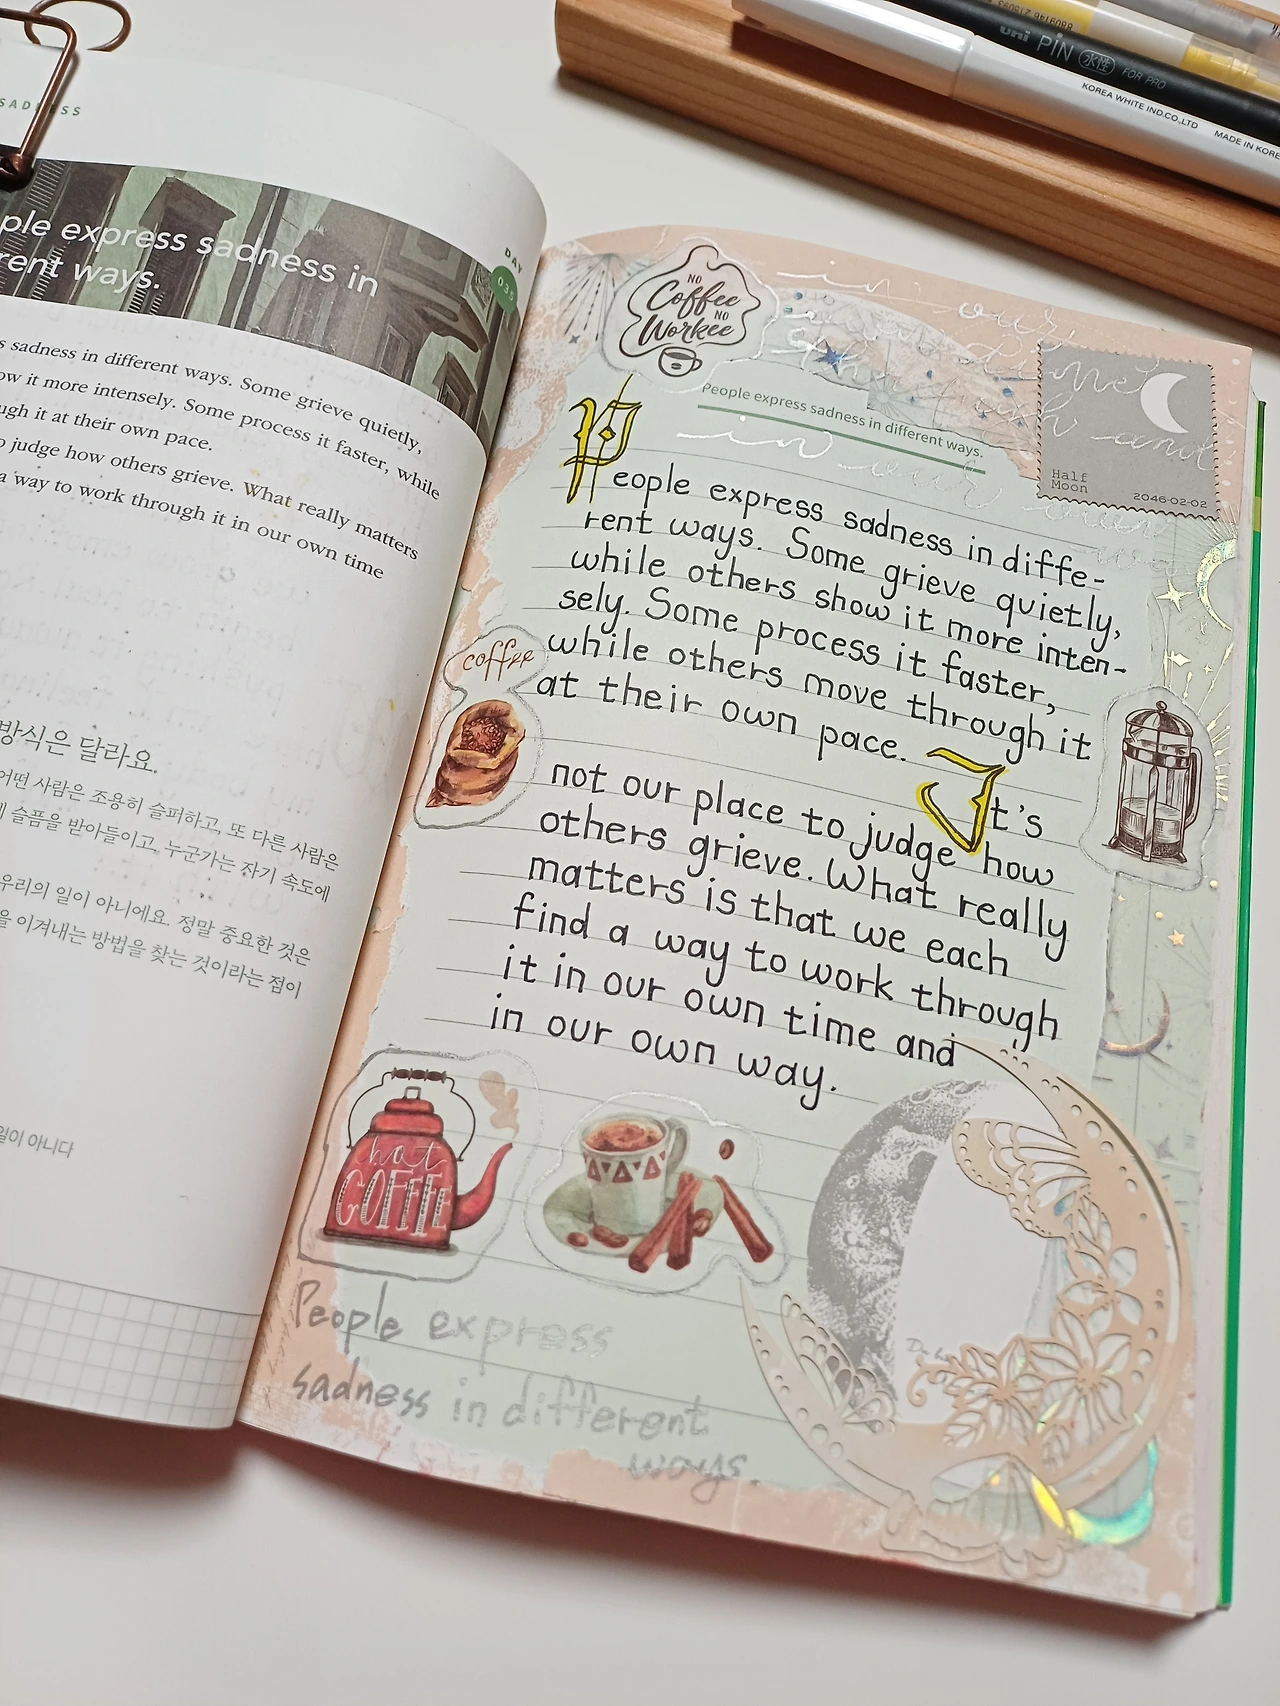 SADNESS
ple express sadness in
rent ways.
DAY
035
s sadness in different ways. Some grieve quietly,
ow it more intensely. Some process it faster, while
ugh it at their own pace.
o judge how others grieve. What really matters
a way to work through it in our own time
방식은 달라요.
어떤 사람은 조용히 슬퍼하고, 또 다른 사람은
슬픔을 받아들이고, 누군가는 자기 속도에
우리의 일이 아니에요. 정말 중요한 것은
을 이겨내는 방법을 찾는 것이라는 점이
일이 아니다
uni PiN 水性 FOR PRO
KOREA WHITE IND.CO.,LTD MADE IN KORE
NO
Coffee
NO
Workee
in our
time
through and
in our own
Half
Moon
2046-02-02
People express sadness in different ways.
People express sadness in diffe-
rent ways. Some grieve quietly,
while others show it more inten-
sely. Some process it faster,
while others move through it
at their own pace. It's
not our place to judge how
others grieve. What really
matters is that we each
find a way to work through
it in our own time and
in our own way.
coffee
hot
COFFEE
People express
sadness in different
ways.